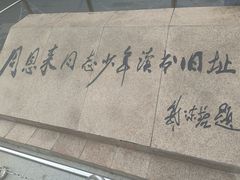 周恩来同志少年读书旧址
彭冲题